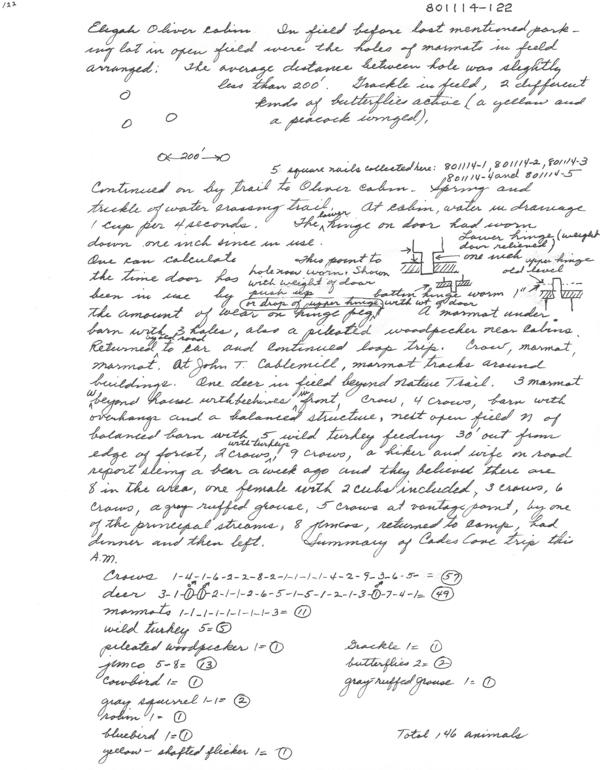 122
801114-122
Elijah Oliver cabin. In field before last mentioned park-
ing lot in open field were the holes of marmots in field
arranged: The average distance between hole was slightly
less than 200'. Grackle in field, 2 different
kinds of butterflies active (a yellow and
a peacock winged).
200'
5 square nails collected here: 801114-1, 801114-2, 801114-3
801114-4 and 801114-5
Continued on by trail to Oliver cabin. Spring and
trickle of water crossing trail. At cabin, water in drainage
1 cup per 4 seconds. The lower hinge on door had worn
down one inch since in use.
Lower hinge (weight
door relieved)
One can calculate
This point to
one inch
upper hinge
the time door has
hole now worn. Shown
old level
with weight of door
been in use by
push up
bottom hinge worm 1"
(or drop of upper hinge) with wt. of door
the amount of wear on hinge peg. A marmot under
barn with 3 holes, also a pileated woodpecker near cabins.
Returned to car and continued loop trip. Crow, marmot,
road
marmot. At John T. Cablemill, marmot tracks around
buildings. One deer in field beyond Nature Trail. 3 marmot
beyond house with beehives in front, Crow, 4 crows, barn with
overhangs and a balanced structure, next open field N of
balanced barn with 5 wild turkey feeding 30' out from
edge of forest, 2 crows with turkeys, 9 crows, a hiker and wife on road
report seeing a bear a week ago and they believed there are
8 in the area, one female with 2 cubs included, 3 crows, 6
crows, a gray ruffed grouse, 5 crows at vantage point, by one
of the principal streams, 8 juncos, returned to camp, had
dinner and then left. Summary of Cades Cove trip this
A.M.
Crows 1-4-1-6-2-2-8-2-1-1-1-1-4-2-9-3-6-5- = 57
deer 3-1-1-1-2-1-1-2-6-5-1-5-1-2-1-3-1-7-4-1= 49
marmots 1-1-1-1-1-1-1-1-3= 11
wild turkey 5= 5
pileated woodpicker 1= 1
Grackle 1= 1
junco 5-8= 13
butterflies 2= 2
Cowbird 1= 1
gray-ruffed grouse 1= 1
gray squirrel 1-1= 2
robin 1= 1
bluebird 1= 1
Total 146 animals
yellow-shafted flicker 1= 1